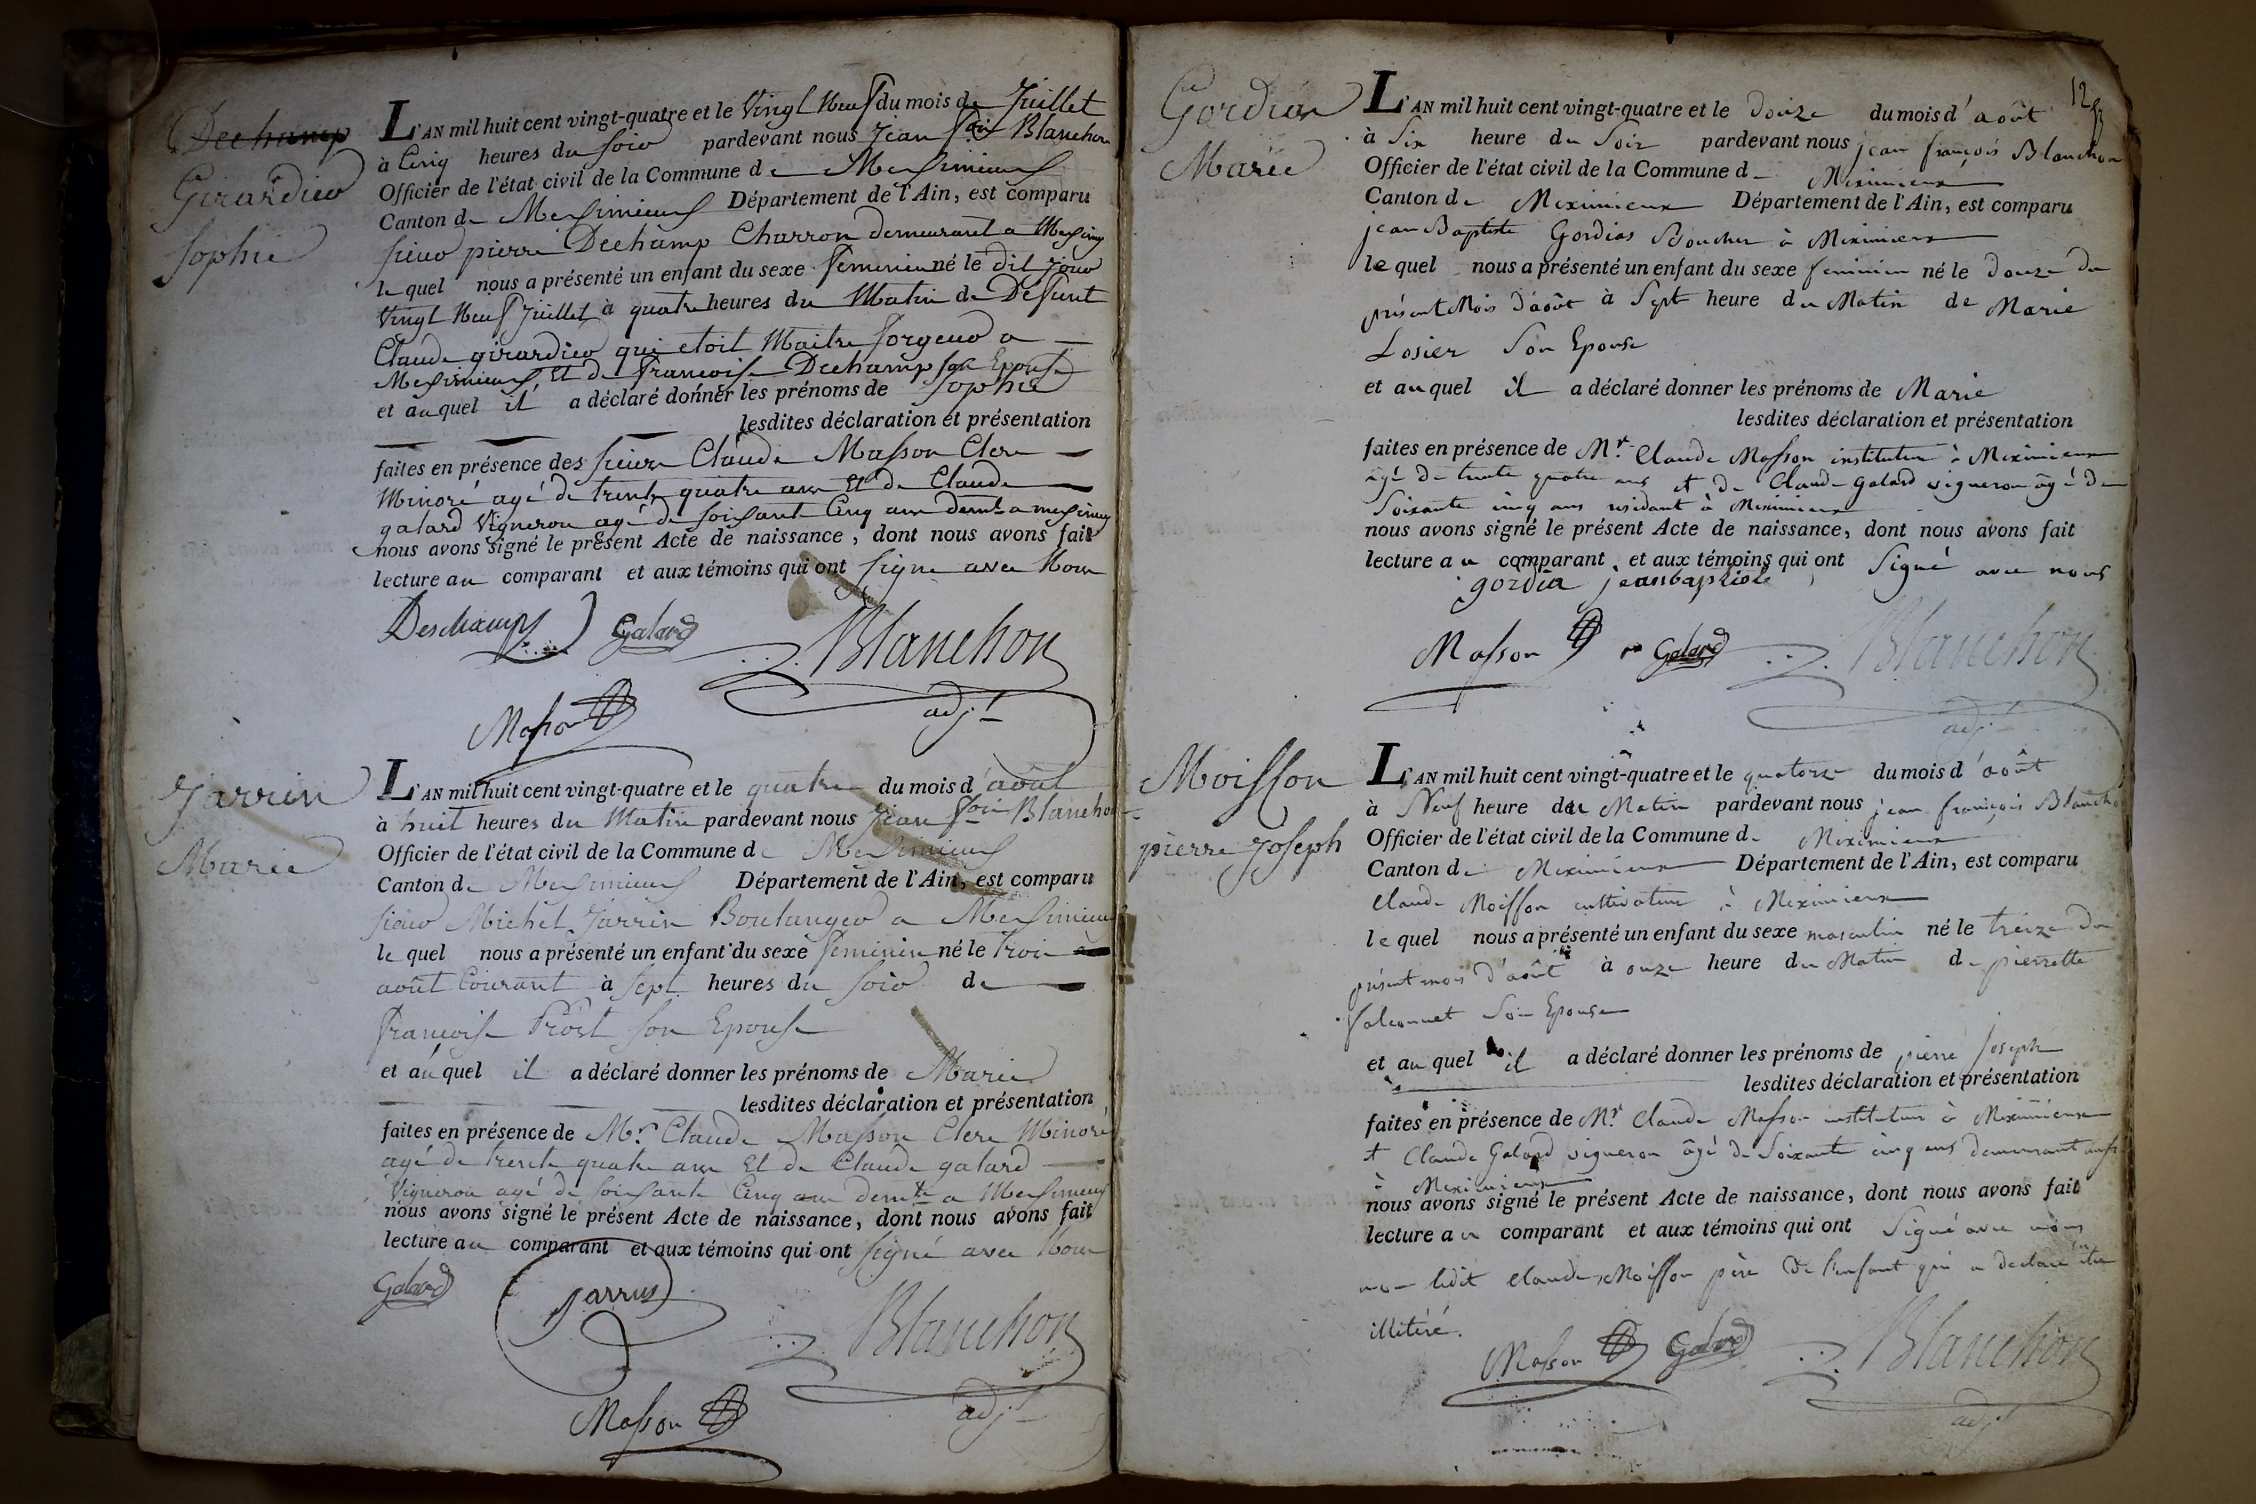 Dechamp
Girardier
Sophie
L'AN mil huit cent vingt-quatre et le Vingt Neuf du mois de Juillet
à Cinq heures du soir pardevant nous Jean fois Blanchon
Officier de l'état civil de la Commune de Meximieux
Canton de Meximieux Département de l'Ain, est comparu
sieur pierre Dechamp Charron demeurant a
le quel nous a présenté un enfant du sexe feminin né le dit jour
Vingt Neuf Juillet à quatre heures du Matin de Defunt
Claude girardier qui etoit Maitre forgeur a
Meximieux, Et de francoise Dechamp son Epouse
et au quel il a déclaré donner les prénoms de Sophie
lesdites déclaration et présentation
faites en présence des sieurs Claude Masson Clerc
Minoré agé de trente quatre ans Et de Claude
galard Vigneron agé de soixante Cinq ans demt a
nous avons signé le présent Acte de naissance, dont nous avons fait
lecture au comparant et aux témoins qui ont signe avec Nous
Deschamps Galard Blanchon
Masson adjt
Jarrin
Marie
L'AN mil huit cent vingt-quatre et le quatre du mois d'août
à huit heures du Matin pardevant nous Jean fois Blanchon
Officier de l'état civil de la Commune de Meximieux
Canton de Meximieux Département de l'Ain, est comparu
sieur Michel Jarrin Boulanger a Meximieux
le quel nous a présenté un enfant du sexe feminin né le trois
août Courant à sept heures du soir de
francoise Prost son Epouse
et au quel il a déclaré donner les prénoms de Marie
lesdites déclaration et présentation
faites en présence de Mr Claude Masson Clerc Minoré
agé de trente quatre ans Et de Claude galard
Vigneron agé de soixante Cinq ans demt a Meximieux
nous avons signé le présent Acte de naissance, dont nous avons fait
lecture au comparant et aux témoins qui ont signé avec Nous
Galard Blanchon
Masson adjt
12
Gordias
Marie
L'AN mil huit cent vingt-quatre et le douze du mois d'août
à Six heure du Soir pardevant nous jean françois Blanchon
Officier de l'état civil de la Commune de Meximieux
Canton de Meximieux Département de l'Ain, est comparu
jean Baptiste Gordias Boucher à Meximieux
le quel nous a présenté un enfant du sexe feminin né le douze du
présent Mois d'août à Sept heure du Matin de Marie
Losier Son Epouse
et au quel il a déclaré donner les prénoms de Marie
lesdites déclaration et présentation
faites en présence de Mr. Claude Masson instituteur à Meximieux
âgé de trente quatre ans et de Claude Galard vigneron âgé de
Soixante cinq ans residant à Meximieux
nous avons signé le présent Acte de naissance, dont nous avons fait
lecture au comparant et aux témoins qui ont Signé avec nous
gordia jeanbaptiste
Masson Galard Blanchon
adjt
Moisson
pierre Joseph
L'AN mil huit cent vingt-quatre et le quatorze du mois d'août
à Neuf heure du Matin pardevant nous jean françois Blanchon
Officier de l'état civil de la Commune de Meximieux
Canton de Meximieux Département de l'Ain, est comparu
Claude Moisson cultivateur à Meximieux
le quel nous a présenté un enfant du sexe masculin né le treize du
présent mois d'août à onze heure du Matin de pierrette
falconnet Son Epouse
et au quel il a déclaré donner les prénoms de pierre joseph
lesdites déclaration et présentation
faites en présence de Mr. Claude Masson instituteur à Meximieux
et Claude Galard vigneron âgé de Soixante cinq ans demeurant aussi
à Meximieux
nous avons signé le présent Acte de naissance, dont nous avons fait
lecture au comparant et aux témoins qui ont Signé avec nous
non ledit Claude Moisson père de l'enfant qui a declaré être
illitéré.
Masson Galard Blanchon
adjt